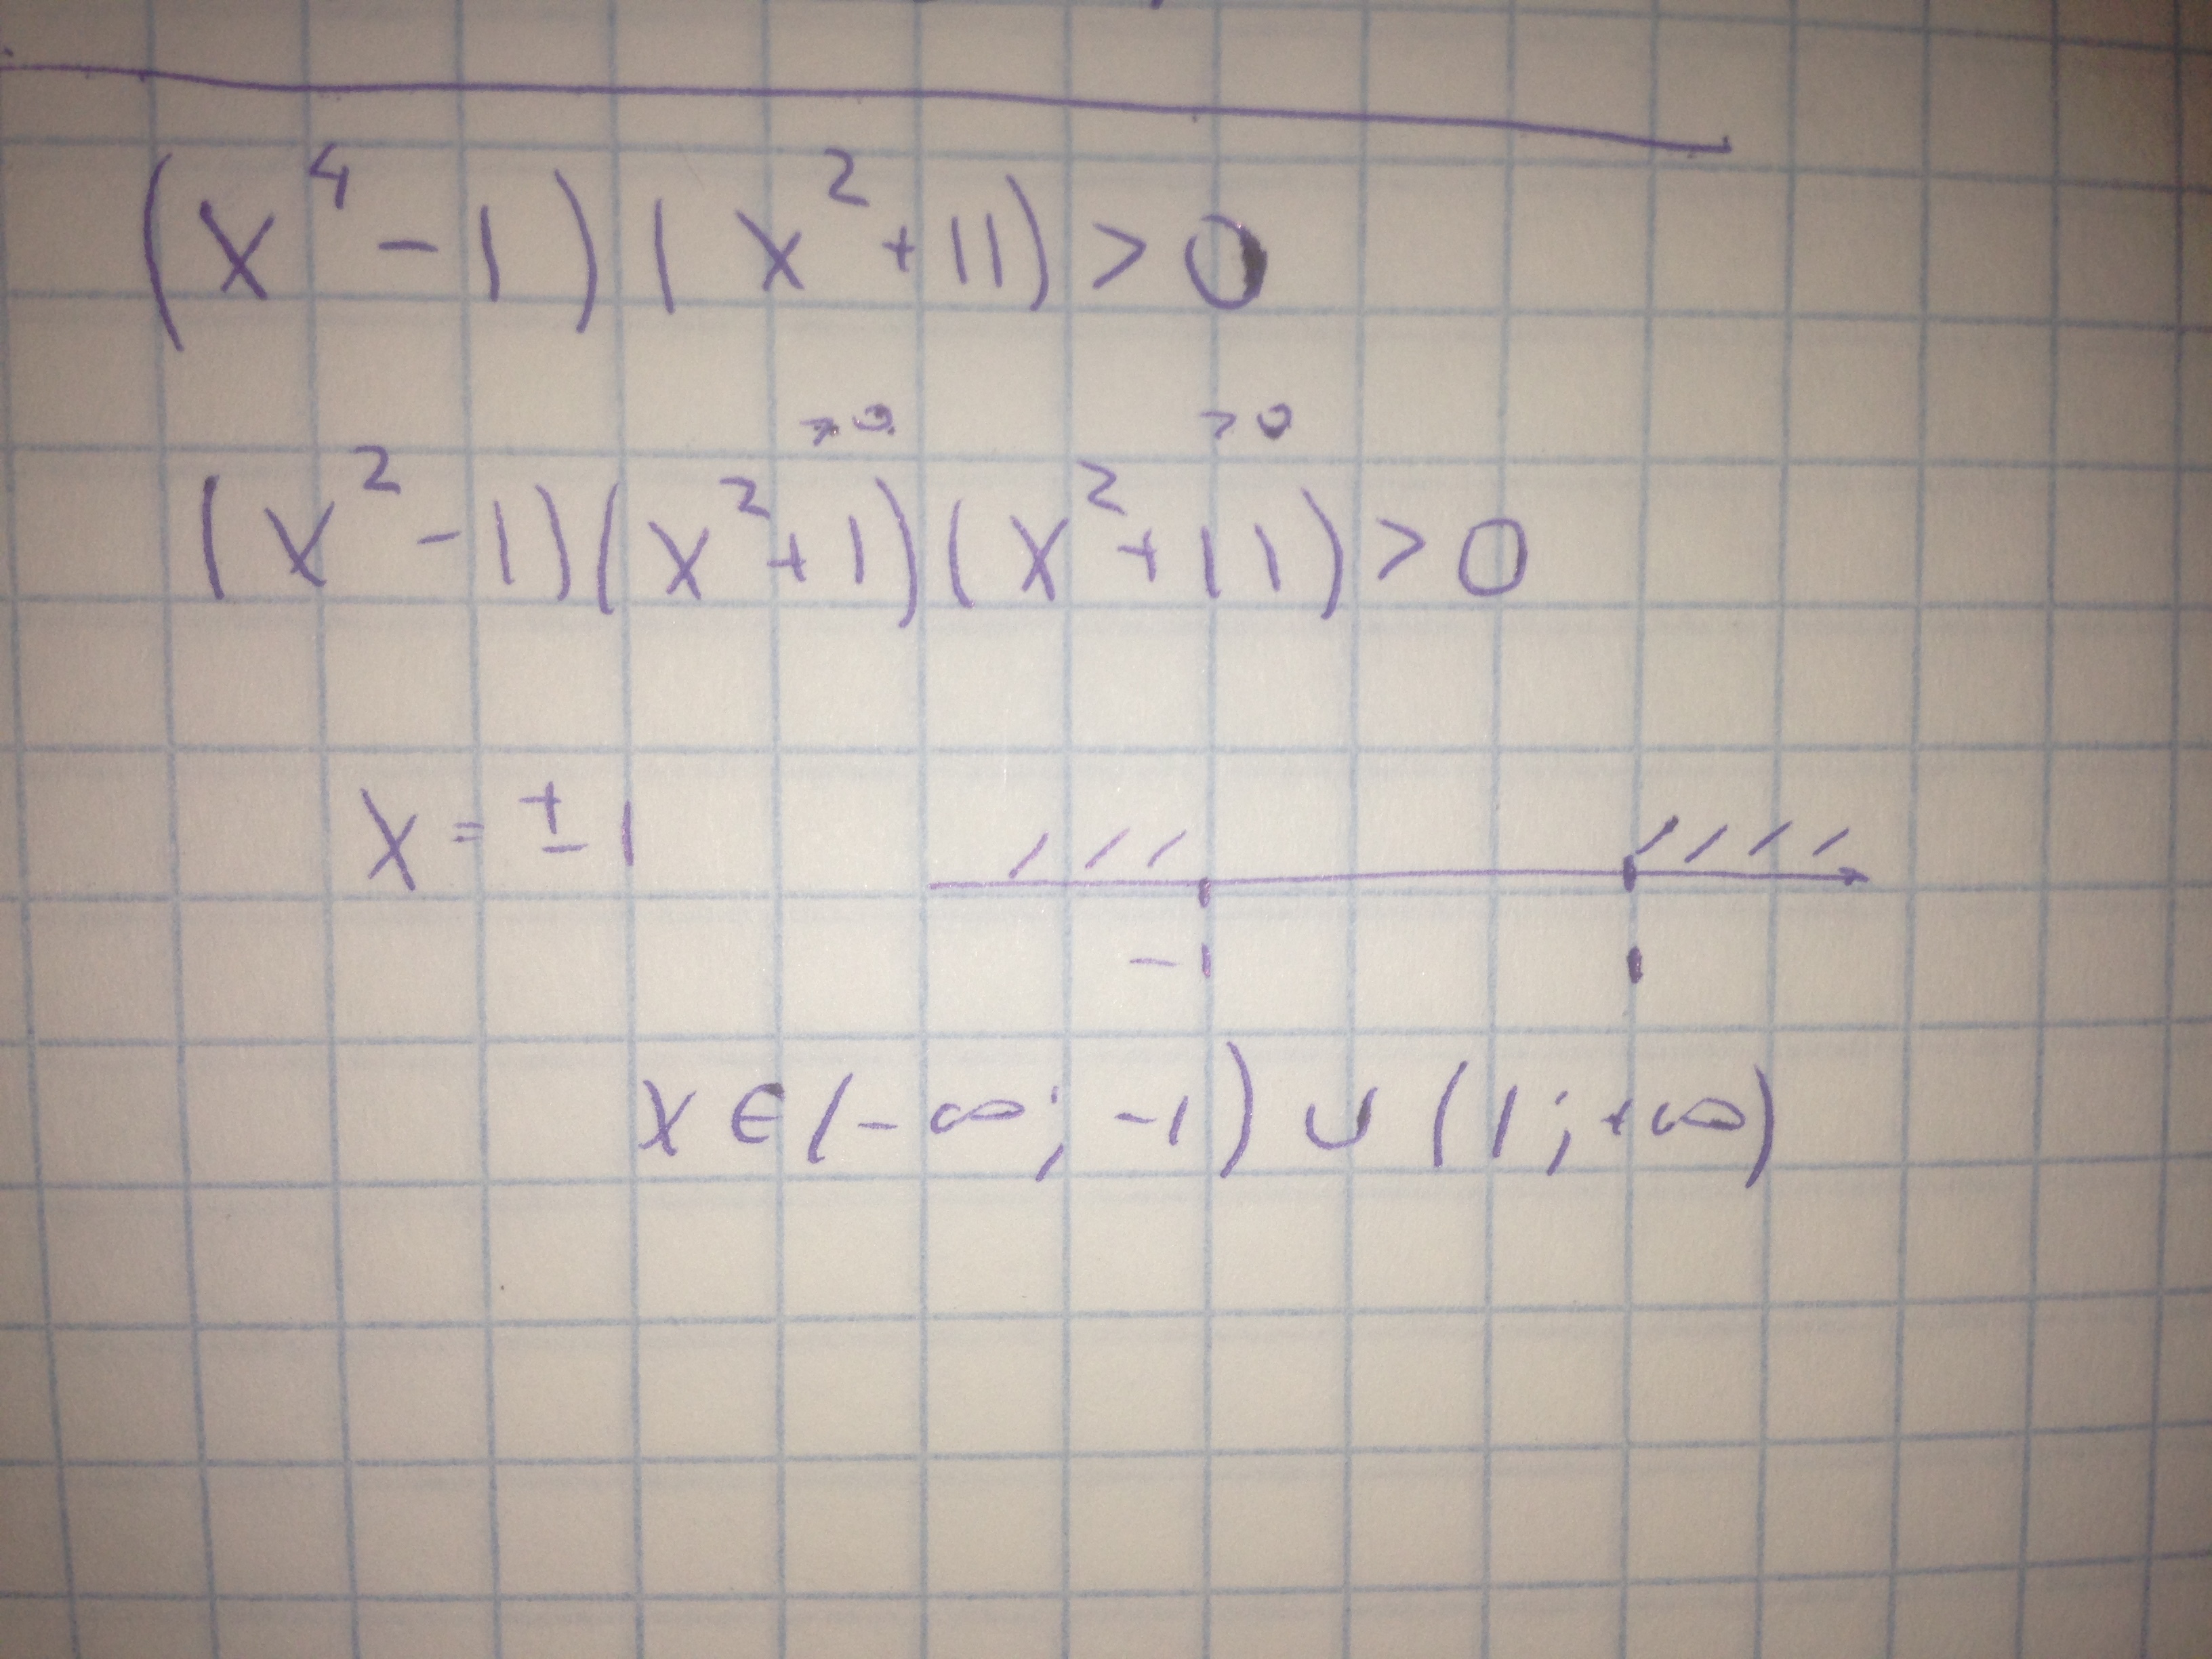 (x⁴-1)(x²+11)>0
>0 >0
(x²-1)(x²+1)(x²+11)>0
x=±1
-1 1
x∈(-∞;-1)∪(1;+∞)